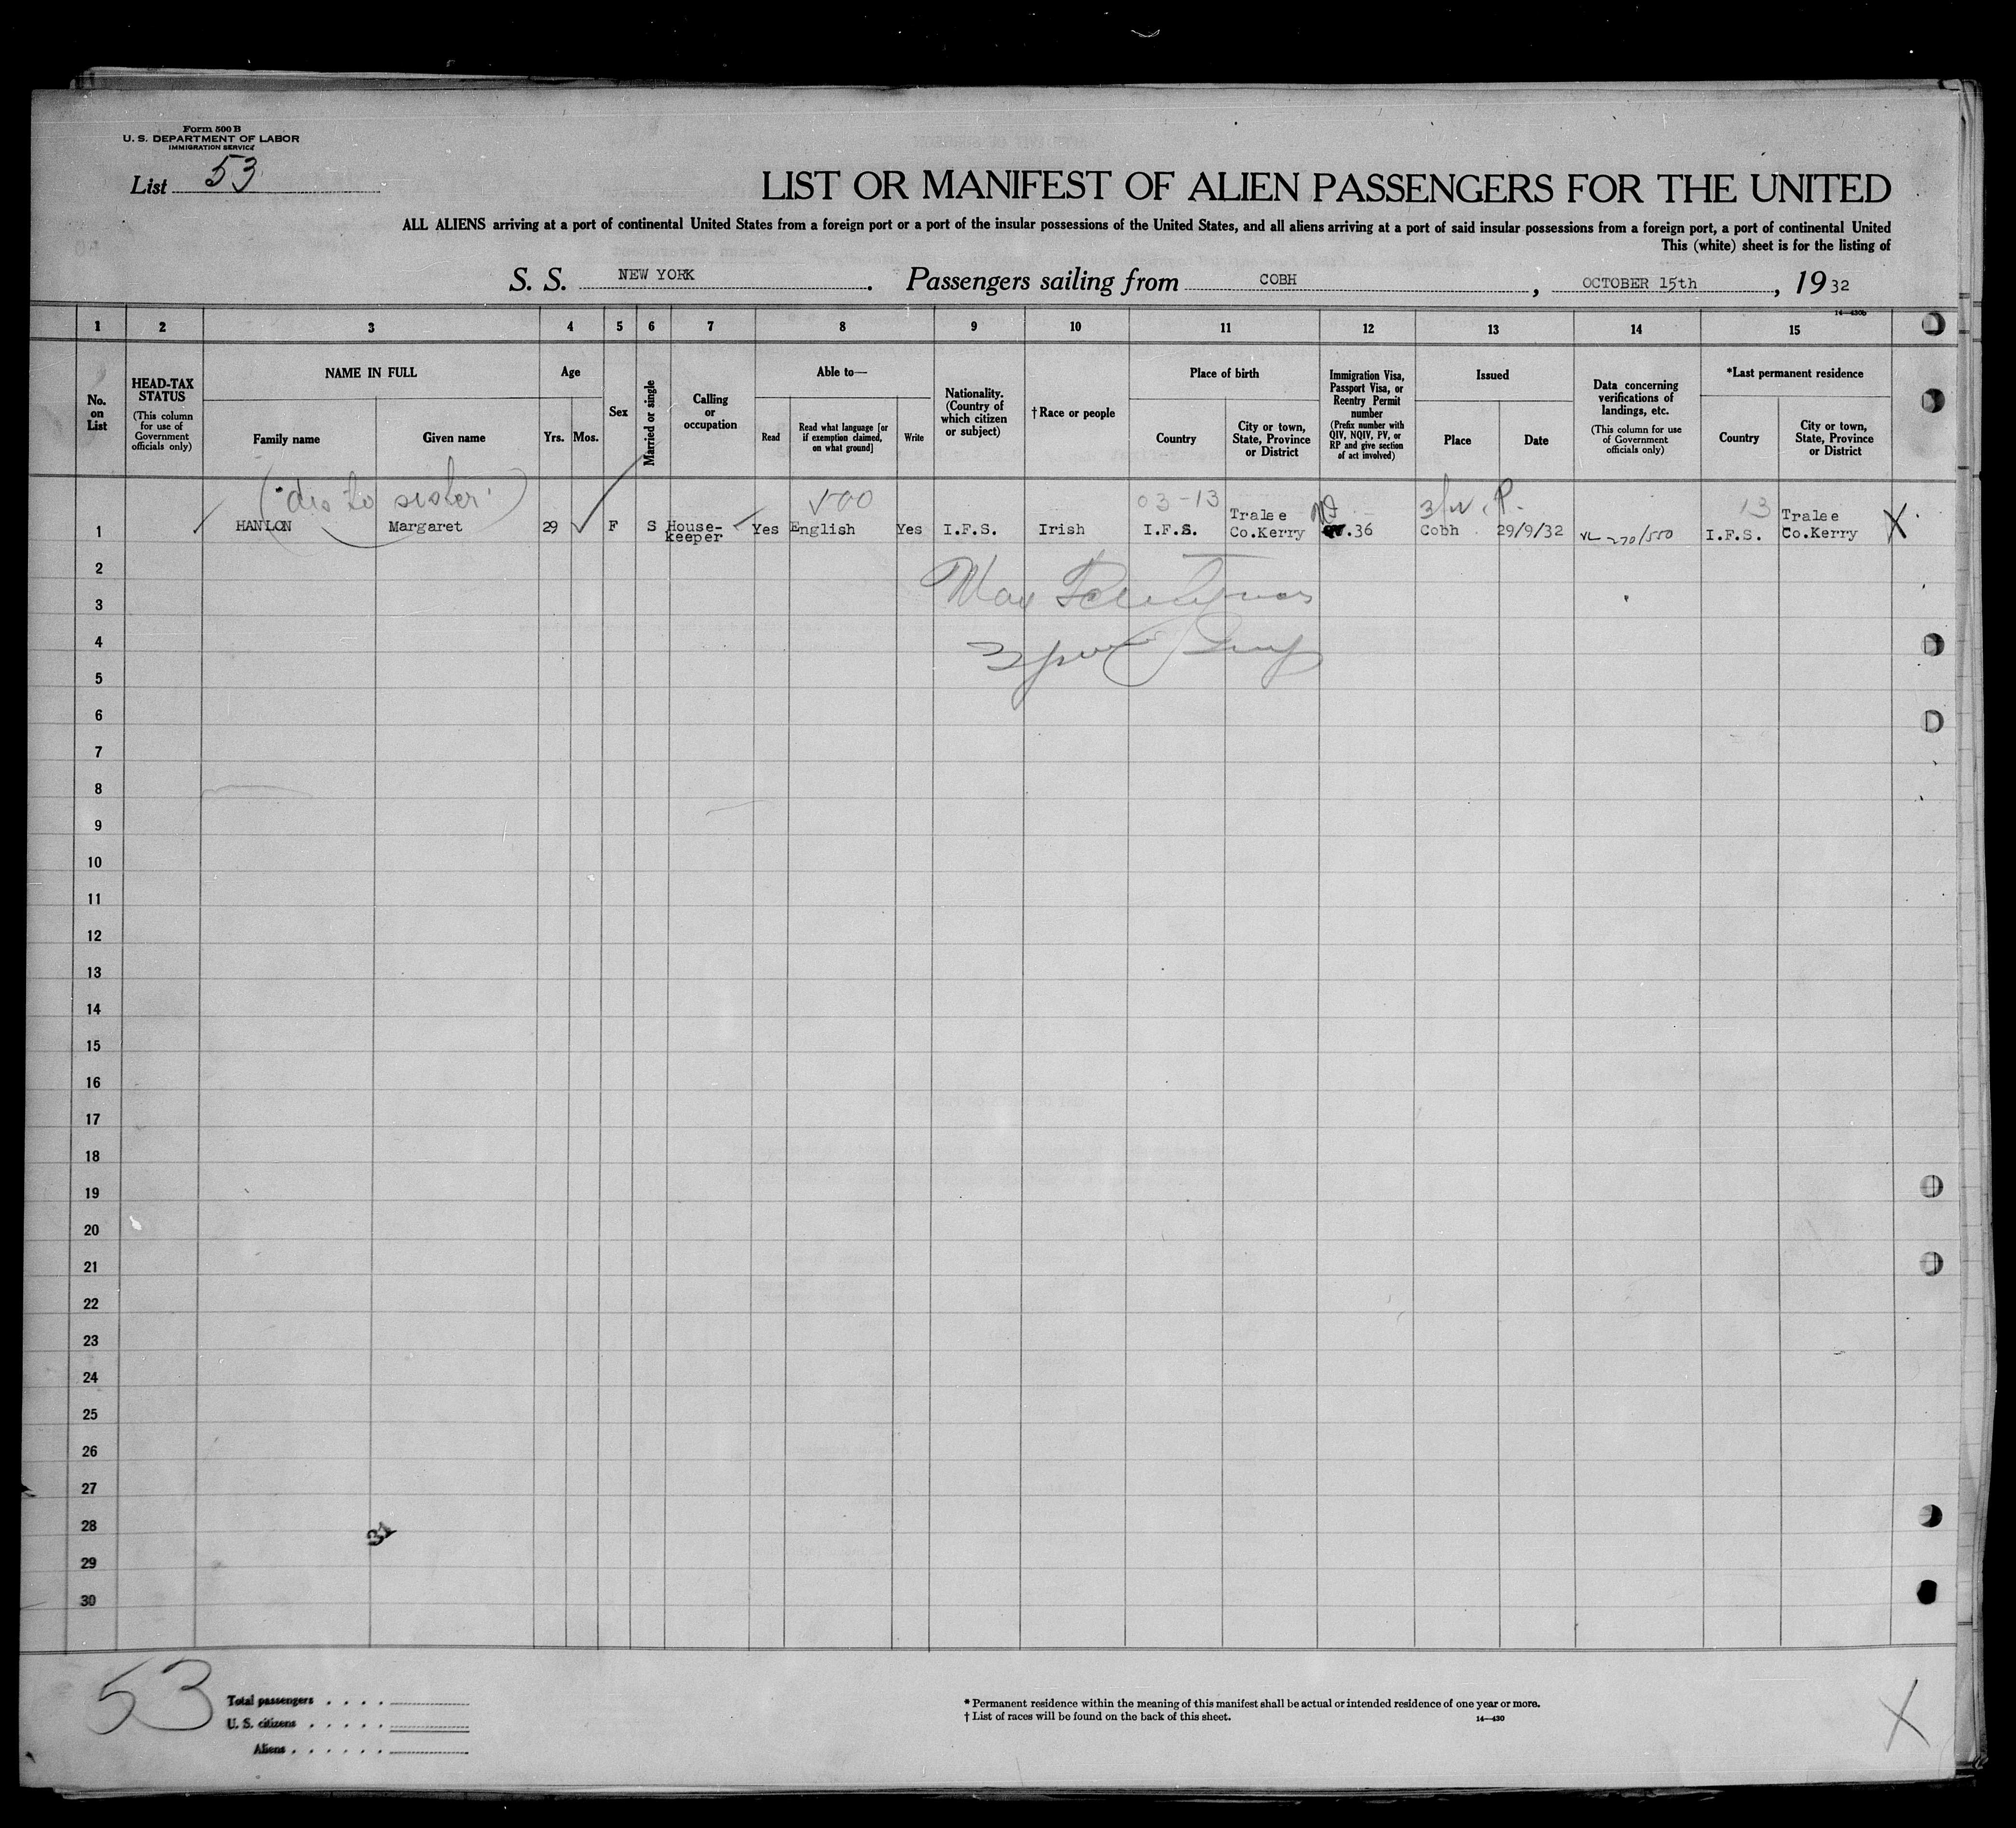 Form 500 B
U. S. DEPARTMENT OF LABOR
IMMIGRATION SERVICE
List 53
LIST OR MANIFEST OF ALIEN PASSENGERS FOR THE UNITED
ALL ALIENS arriving at a port of continental United States from a foreign port or a port of the insular possessions of the United States, and all aliens arriving at a port of said insular possessions from a foreign port, a port of continental United
This (white) sheet is for the listing of
S. S. NEW YORK. Passengers sailing from COBH, OCTOBER 15th, 1932
14—430b
1 2 3 4 5 6 7 8 9 10 11 12 13 14 15
No. on List
HEAD-TAX STATUS
(This column for use of Government officials only)
NAME IN FULL
Family name
Given name
Age
Yrs. Mos.
Sex
Married or single
Calling or occupation
Able to—
Read
Read what language [or if exemption claimed, on what ground]
Write
Nationality. (Country of which citizen or subject)
† Race or people
Place of birth
Country
City or town, State, Province or District
Immigration Visa, Passport Visa, or Reentry Permit number
(Prefix number with QIV, NQIV, PV, or RP and give section of act involved)
Issued
Place
Date
Data concerning verifications of landings, etc.
(This column for use of Government officials only)
*Last permanent residence
Country
City or town, State, Province or District
(dis to sister)
03-13
3/w. P.
13
1 HANLON Margaret 29 F S House-keeper Yes English Yes I.F.S. Irish I.F.S. Tralee Co.Kerry .36 Cobh 29/9/32 VL 270/550 I.F.S. Tralee Co.Kerry X
2
3
4
5
6
7
8
9
10
11
12
13
14
15
16
17
18
19
20
21
22
23
24
25
26
27
28
29
30
53
Total passengers . . . .
U. S. citizens . . . . .
Aliens . . . . . .
* Permanent residence within the meaning of this manifest shall be actual or intended residence of one year or more.
† List of races will be found on the back of this sheet.
14—430
X